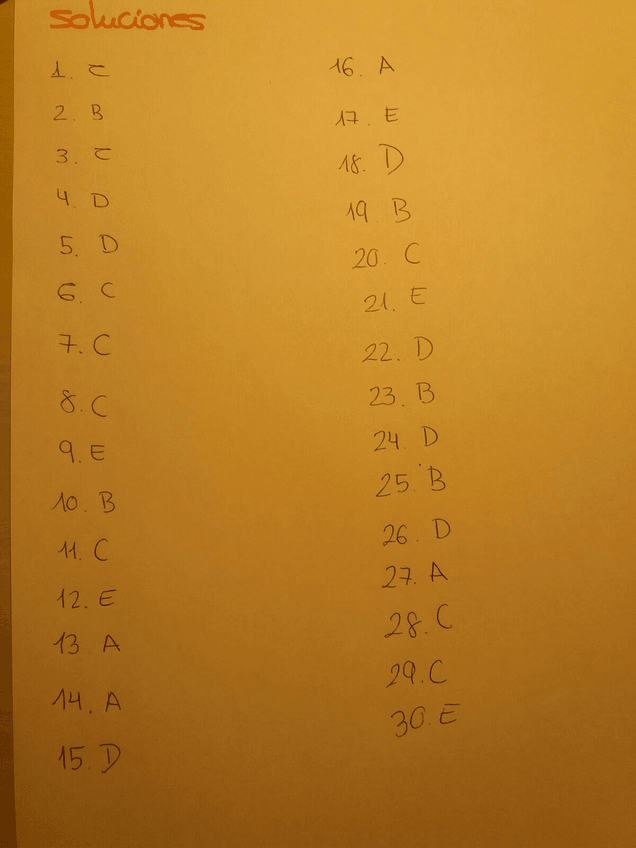 Soluciones
1. C
2. B
3. C
4. D
5. D
6. C
7. C
8. C
9. E
10. B
11. C
12. E
13 A
14. A
15. D
16. A
17. E
18. D
19. B
20. C
21. E
22. D
23. B
24. D
25. B
26. D
27. A
28. C
29. C
30. E